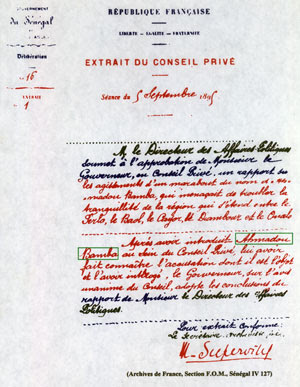 GOUVERNEMENT
du Sénégal
Délibération
N° 16
EXTRAIT
N° 1
RÉPUBLIQUE FRANÇAISE
LIBERTÉ — EGALITÉ — FRATERNITÉ
EXTRAIT DU CONSEIL PRIVÉ
Séance du 5 Septembre 1895
M. le Directeur des Affaires Politiques
soumet à l'approbation de Monsieur le
Gouverneur, en Conseil Privé, un rapport sur
les agissements d'un marabout du nom de
madou Bamba, qui menaçait de troubler la
tranquillité de la région qui s'étend entre le
Ferlo, le Baol, le Cayor, et
Après avoir introduit Ahmadou
Bamba au Sein du Conseil Privé, lui avoir
fait connaître l'accusation dont il est l'objet
et l'avoir interrogé, le Gouverneur, sur l'avis
unanime du Conseil, adopte les conclusions du
rapport de Monsieur le Directeur des affaires
Politiques.
Pour extrait conforme:
Le Secrétaire
(Archives de France, Section F.O.M., Sénégal IV 127)